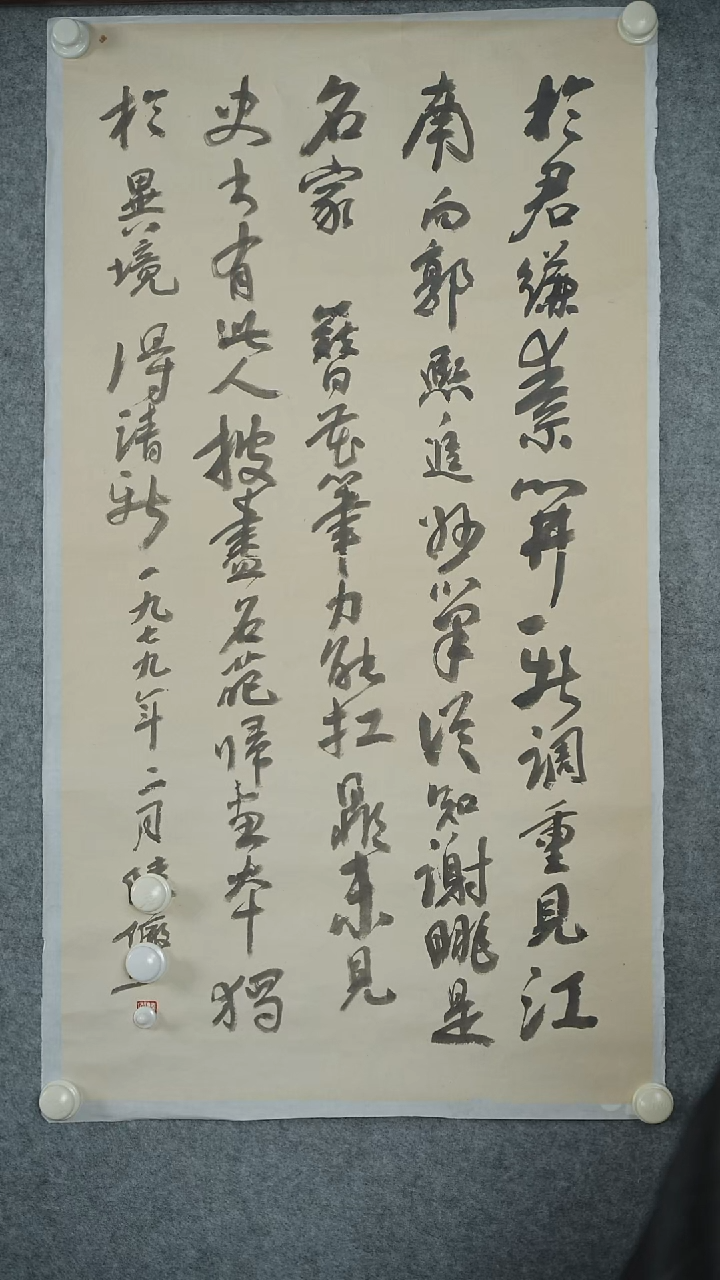 於君縑素開新調重見江
南向郭熙追妙筆從知謝朓是
名家 簪花筆力能扛鼎未見
史書有此人披盡名葩歸畫本獨
於異境得清新一九七九年二月